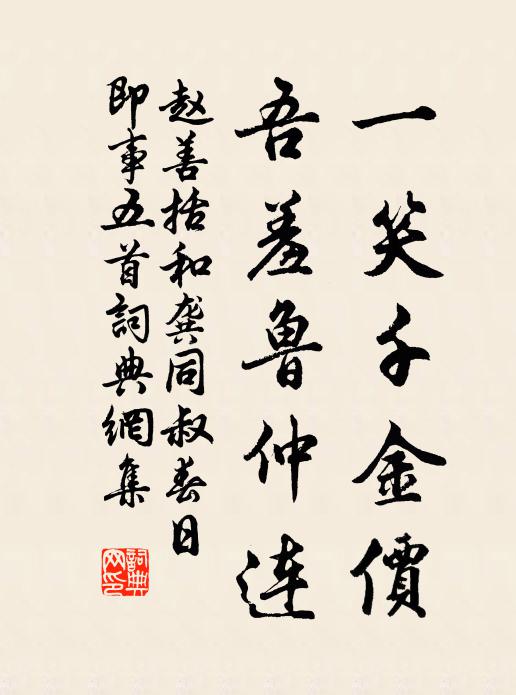 一笑千金價
吾羞魯仲連
赵善括和龔同叔春日
即事五首詞典網集
詞典網印